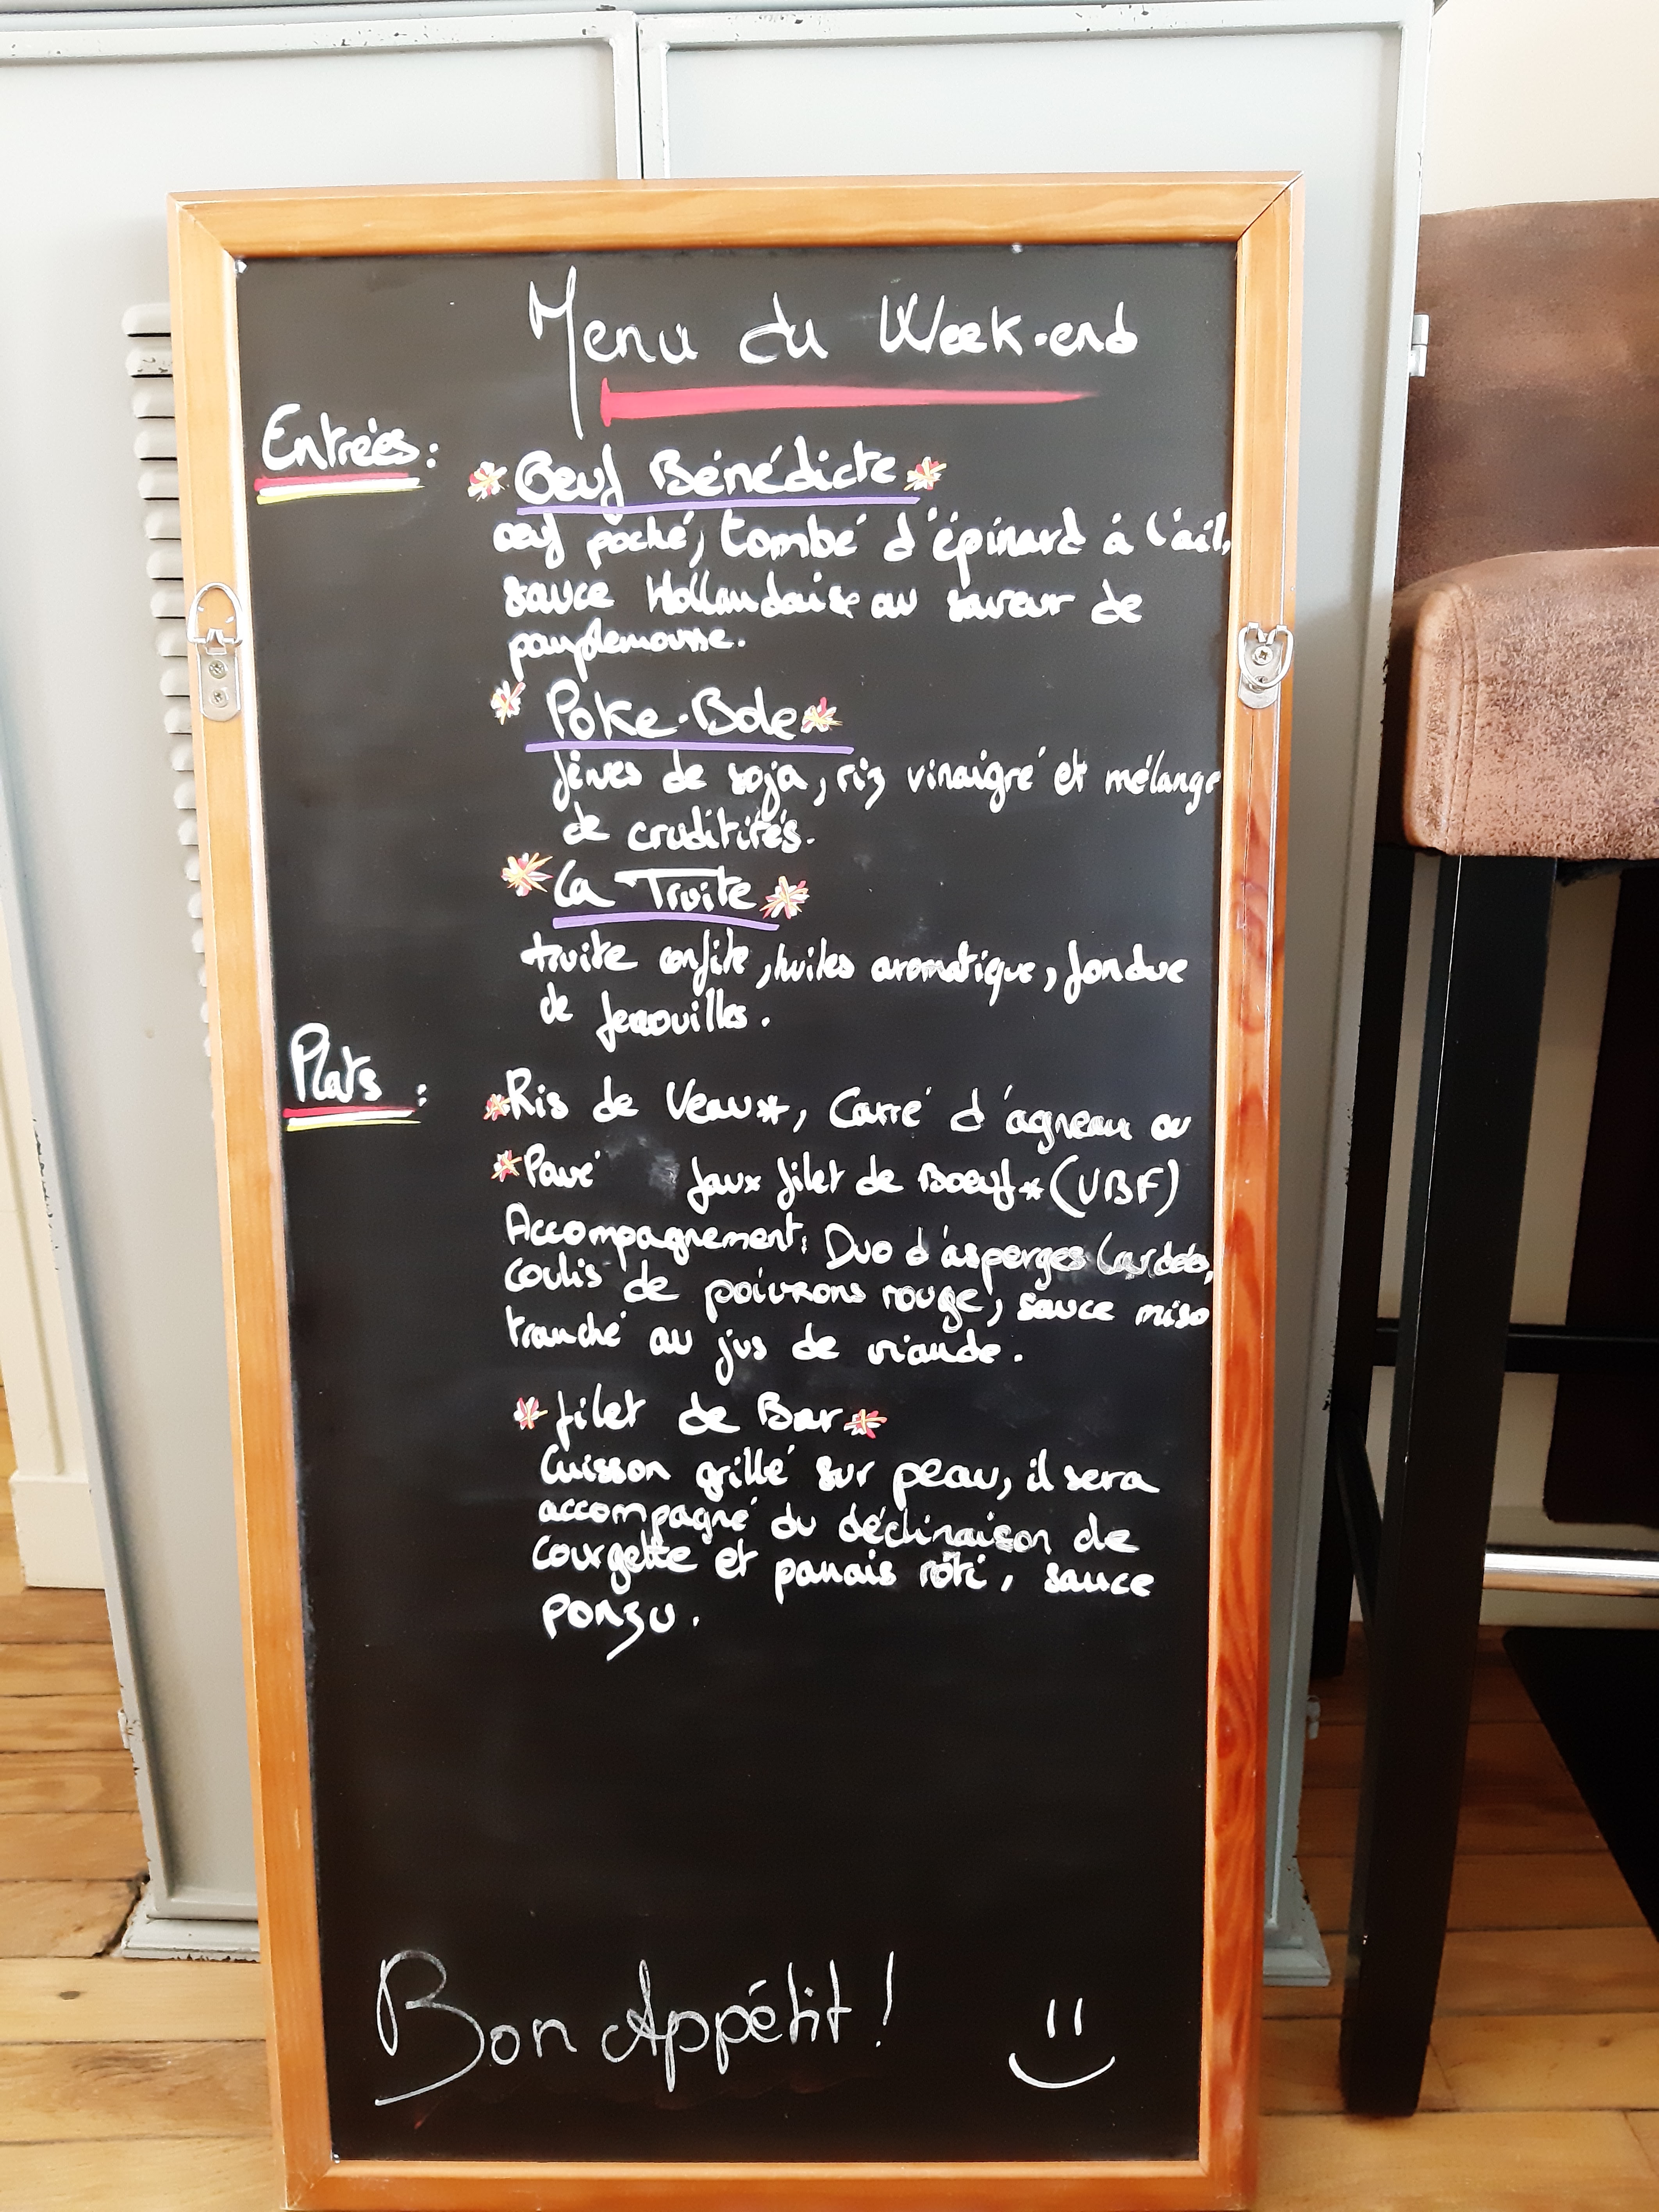 Menu du Week-end
Entrées :
Oeuf Bénédicte
oeuf poché, tombé d'épinard à l'ail,
sauce Hollandaise au saveur de
pamplemousse.
Poke-Bole
fèves de soja, riz vinaigré et mélange
de cruditités.
La Truite
truite confite, huiles aromatique, fondue
de fenouilles.
Plats :
*Ris de Veau*, Carré d'agneau ou
*Pavé faux filet de Boeuf*(VBF)
Accompagnement: Duo d'asperges lardées,
coulis de poivrons rouge, sauce miso
tranché au jus de viande.
filet de Bar
Cuisson grillé sur peau, il sera
accompagné du déclinaison de
courgette et panais rôti, sauce
ponzu.
Bon Appétit !